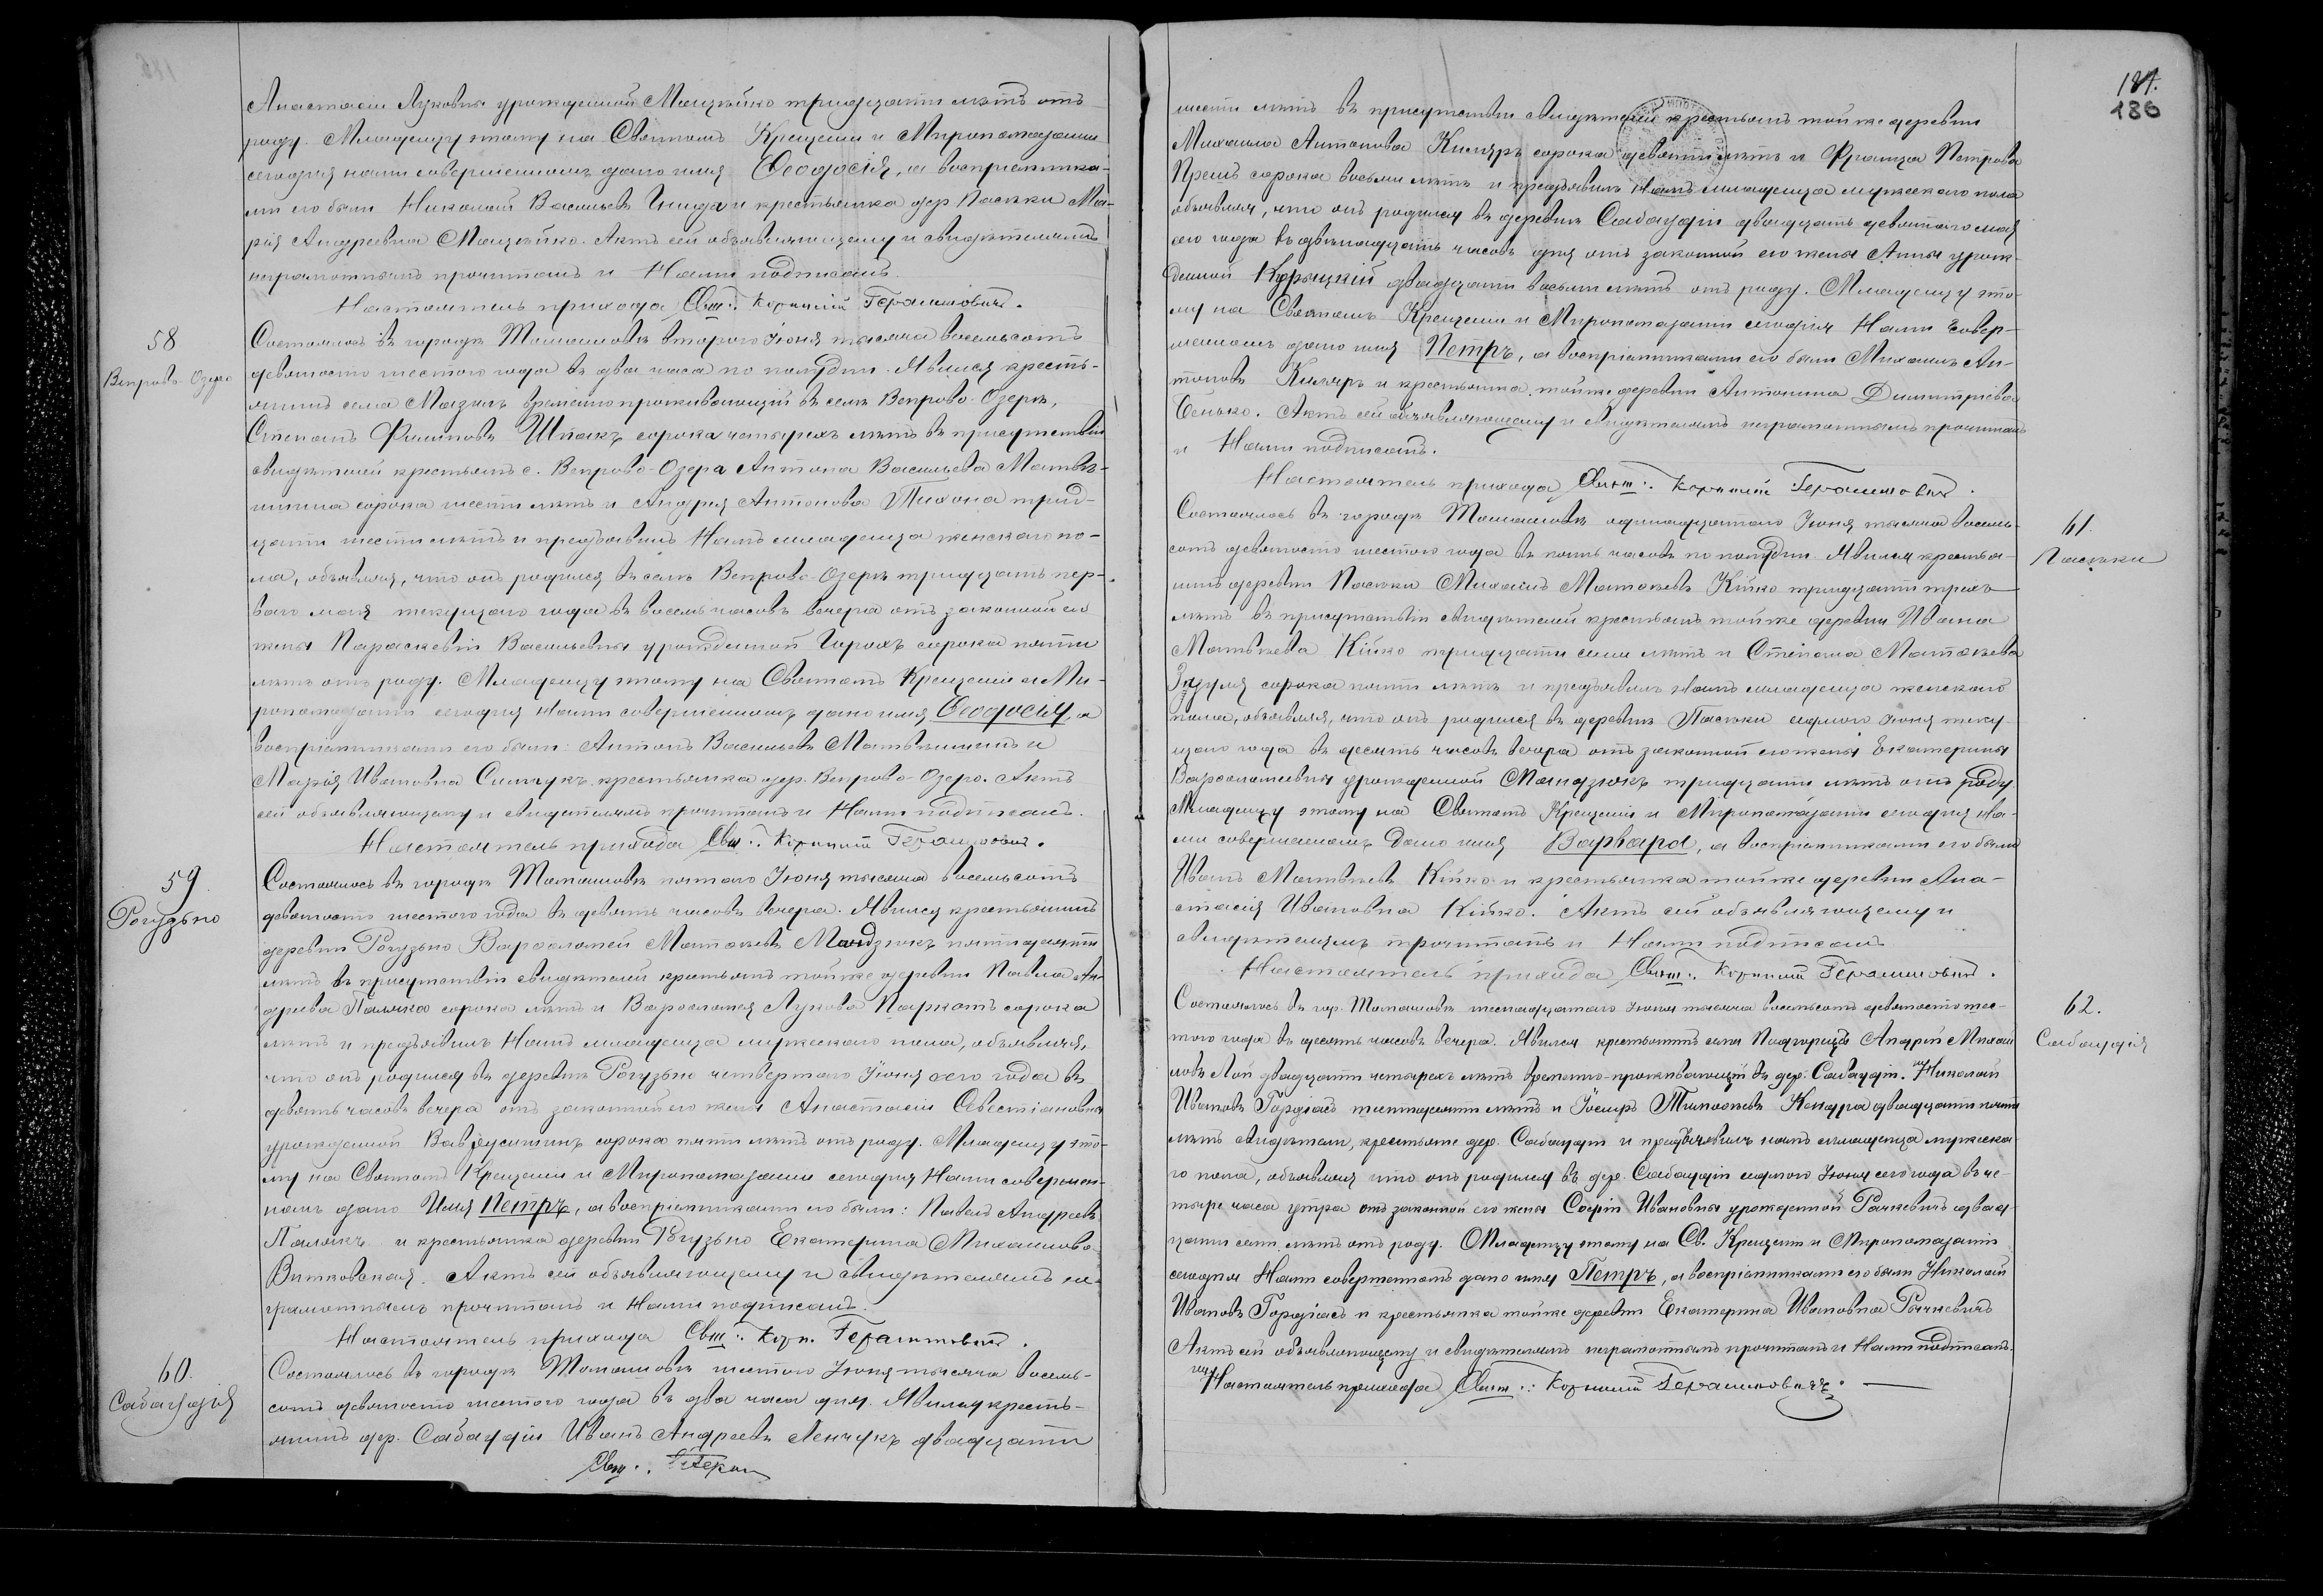 Анастасіи Луковны урожденной Мацѣйко тридцати лѣтъ отъ
роду. Младенцу этому на Святомъ Крещеніи и Миропомазаніи
сегодня нами совершенномъ дано имя Ѳеодосія, а воспріемника-
ми его были Николай Васильевъ Гнида и крестьянка дер. Пасѣки Ма-
рія Андреевна Мацѣйко. Актъ сей объявляющему и свидѣтелямъ
неграмотнымъ прочитанъ и Нами подписанъ.
Настоятель прихода Свящ. Корнилій Герасимовичъ.
58
Вепрово-Озеро
Состоялось въ городѣ Томашовѣ второго Іюня тысяча восемьсотъ
девяносто шестого года въ два часа по полудни. Явился кресть-
янинъ села Мазилъ временно проживающій въ селѣ Вепрово-Озерѣ,
Степанъ Филиповъ Шпакъ сорока четырехъ лѣтъ въ присутствіи
свидѣтелей крестьянъ с. Вепрово-Озера Антона Васильева Матвѣ-
ишина сорока шести лѣтъ и Андрея Антонова Тихона трид-
цати шести лѣтъ и предъявилъ Намъ младенца женскаго по-
ла, объявляя, что онъ родился въ селѣ Вепрово-Озерѣ тридцать пер-
ваго мая текущаго года въ восемь часовъ вечера отъ законной его
жены Параскевіи Васильевны урожденной Горохъ сорока пяти
лѣтъ отъ роду. Младенцу этому на Святомъ Крещеніи и Ми-
ропомазаніи сегодня Нами совершенномъ дано имя Ѳеодосія, а
воспріемниками его были: Антонъ Васильевъ Матвѣишинъ и
Марія Ивановна Симчукъ крестьянка дер. Вепрово-Озеро. Актъ
сей объявляющему и свидѣтелямъ прочитанъ и Нами подписанъ.
Настоятель прихода Свщ. Корнилій Герасимовичъ.
59.
Рогузьно
Состоялось въ городѣ Томашовѣ пятаго Іюня тысяча восемьсотъ
девяносто шестого года въ девять часовъ вечера. Явился крестьянинъ
деревни Рогузьно Варѳоломей Матѳеевъ Мандзюкъ пятидесяти
лѣтъ въ присутствіи свидѣтелей крестьянъ той же деревни Павла Ан-
дреева Паляка сорока лѣтъ и Варѳоломея Лукова Паркотъ сорока
лѣтъ и предъявилъ Намъ младенца мужескаго пола, объявляя,
что онъ родился въ деревнѣ Рогузьно четвертаго Іюня сего года въ
девять часовъ вечера отъ законной его жены Анастасіи Севестіановны
урожденной сорока пяти лѣтъ отъ роду. Младенцу это-
му на Святомъ Крещеніи и Миропомазаніи сегодня Нами совершен-
номъ дано Имя Петръ, а воспріемниками его были: Павелъ Андреевъ
Палякъ и крестьянка деревни Рогузьно Екатерина Михаилова
Витковская. Актъ сей объявляющему и свидѣтелямъ не-
грамотнымъ прочитанъ и Нами подписанъ.
Настоятель прихода Свщ. Корн. Герасимовичъ.
60.
Сабаудія
Состоялось въ городѣ Томашовѣ шестого Іюня тысяча восемь-
сотъ девяносто шестого года въ два часа дня. Явился кресть-
янинъ дер. Сабаудіи Иванъ Андреевъ Ленчукъ двадцати
Свящ.
187.
186
шести лѣтъ въ присутствіи свидѣтелей крестьянъ той же деревни
Михаила Антонова Кшляръ сорока девяти лѣтъ и Франца Петрова
сорока восьми лѣтъ и предъявилъ Намъ младенца мужескаго пола
объявляя, что онъ родился въ деревнѣ Сабаудіи двадцать девятаго мая
сего года въ двѣнадцать часовъ дня отъ законной его жены Анны урож-
денной двадцати восьми лѣтъ отъ роду. Младенцу это-
му на Святомъ Крещеніи и Миропомазаніи сегодня Нами совер-
шенномъ дано имя Петръ, а воспріемниками его были Михаилъ Ан-
тоновъ и крестьянка той же деревни Антонина Димитріева
Бенько. Актъ сей объявляющему и свидѣтелямъ неграмотнымъ прочитанъ
и Нами подписанъ.
Настоятель прихода Свящ. Корнилій Герасимовичъ.
61.
Пасѣки
Состоялось въ городѣ Томашовѣ одинадцатаго Іюня тысяча восемь-
сотъ девяносто шестого года въ пять часовъ по полудни. Явился крестья-
нинъ деревни Пасѣки Михаилъ Матѳеевъ Кійко тридцати трехъ
лѣтъ въ присутствіи свидѣтелей крестьянъ той же деревни Ивана
Матвѣева Кійко тридцати семи лѣтъ и Степана Матѳеева
сорока пяти лѣтъ и предъявилъ Намъ младенца женскаго
пола, объявляя, что онъ родился въ деревнѣ Пасѣки седмого Іюня теку-
щаго года въ десять часовъ вечера отъ законной его жены Екатерины
Варѳоломеевны урожденной Мандзюкъ тридцати лѣтъ отъ роду.
Младенцу этому на Святомъ Крещеніи и Миропомазаніи сегодня На-
ми совершенномъ дано имя Варвара, а воспріемниками его были
Иванъ Матвѣевъ Кійко и крестьянка той же деревни Ана-
стасія Ивановна Кійко. Актъ сей объявляющему и
свидѣтелямъ прочитанъ и Нами подписанъ.
Настоятель прихода Свящ. Корнилій Герасимовичъ.
62.
Сабаудія
Состоялось въ гор. Томашовѣ шестнадцатаго Іюня тысяча восемьсотъ девяносто шес-
того года въ десять часовъ вечера. Явился крестьянинъ села Подгорцы Андрей Михаи
ловъ Лой двадцати четырехъ лѣтъ временно-проживающій въ дер. Сабаудіи. Николай
Ивановъ Гордіасъ шестидесяти лѣтъ и Іосифъ Тимоѳеевъ Кендра двадцати пяти
лѣтъ свидѣтели, крестьяне дер. Сабаудіи и предъявилъ намъ младенца мужеска-
го пола, объявляя что онъ родился въ дер. Сабаудіи седмого Іюня сего года въ че-
тыре часа утра отъ законной его жены Софіи Ивановны урожденной Рачкевичъ двад-
цати семи лѣтъ отъ роду. Младенцу этому на Св. Крещеніи и Миропомазаніи
сегодня Нами совершенномъ дано имя Петръ, а воспріемниками его были Николай
Ивановъ Гордіасъ и крестьянка той же деревни Екатерина Ивановна Рачкевичъ
Актъ сей объявляющему и свидѣтелямъ неграмотнымъ прочитанъ и Нами подписанъ.
Настоятель прихода Свящ. Корнилій Герасимовичъ.